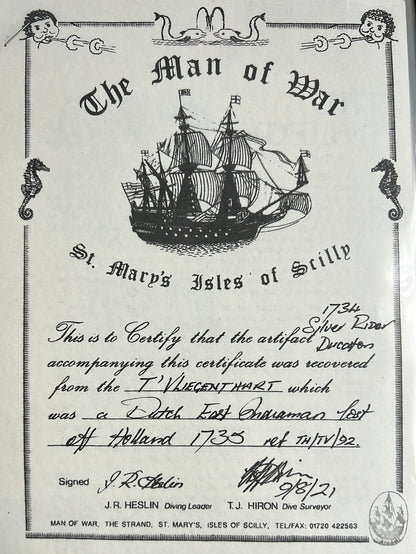 The Man of War
St. Mary's Isles of Scilly
1734
Silver Rider
This is to Certify that the artifact Ducaton
accompanying this certificate was recovered
from the T'VLIEGENTHART which
was a Dutch East Indiaman lost
off Holland 1735 ref TH/TV/92.
Signed J.R. Heslin
9/8/21
J.R. HESLIN Diving Leader T.J. HIRON Dive Surveyor
MAN OF WAR, THE STRAND, ST. MARY'S, ISLES OF SCILLY, TEL/FAX: 01720 422563